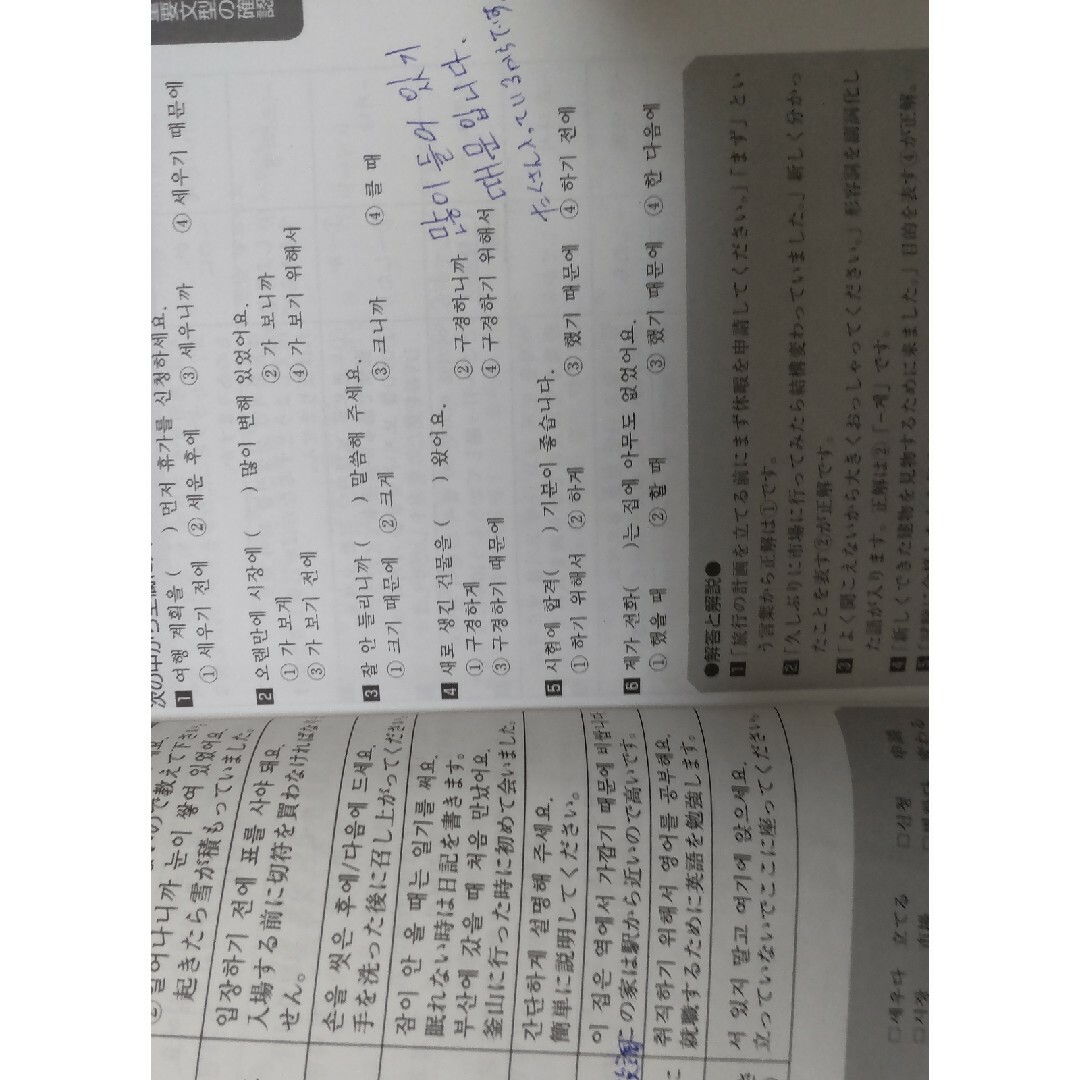 要文型の確認
1 여행 계획을 (　) 먼저 휴가를 신청하세요.
① 세우기 전에 ② 세운 후에 ③ 세우니까 ④ 세우기 때문에
2 오랜만에 시장에 (　) 많이 변해 있었어요.
① 가 보게 ② 가 보니까
③ 가 보기 전에 ④ 가 보기 위해서
3 잘 안 들리니까 (　) 말씀해 주세요.
① 크기 때문에 ② 크게 ③ 크니까 ④ 클 때
4 새로 생긴 건물을 (　) 왔어요.
① 구경하게 ② 구경하니까
③ 구경하기 때문에 ④ 구경하기 위해서
많이 들어 있기
때문입니다.
たくさん入っているからです。
5 시험에 합격(　) 기분이 좋습니다.
① 하기 위해서 ② 하게 ③ 했기 때문에 ④ 하기 전에
6 제가 전화(　)는 집에 아무도 없었어요.
① 했을 때 ② 할 때 ③ 했기 때문에 ④ 한 다음에
●解答と解説●
1「旅行の計画を立てる前にまず休暇を申請してください。」「まず」とい
う言葉から正解は①です。
2「久しぶりに市場に行ってみたら結構変わっていました。」新しく分かっ
たことを表す②が正解です。
3「よく聞こえないから大きくおっしゃってください。」形容詞を副詞化し
た語が入ります。正解は②「-게」です。
4「新しくできた建物を見物するために来ました。」目的を表す④が正解。
ので教えて下さい
일어나니까 눈이 쌓여 있었어요
起きたら雪が積もっていました。
입장하기 전에 표를 사야 돼요
入場する前に切符を買わなければなり
せん。
손을 씻은 후에/다음에 드세요.
手を洗った後に召し上がってください
잠이 안 올 때는 일기를 써요.
眠れない時は日記を書きます。
부산에 갔을 때 처음 만났어요.
釜山に行った時に初めて会いました。
간단하게 설명해 주세요.
簡単に説明してください。
이 집은 역에서 가깝기 때문에 비쌉니다
この家は駅から近いので高いです。
취직하기 위해서 영어를 공부해요.
就職するために英語を勉強します。
서 있지 말고 여기에 앉으세요.
立っていないでここに座ってください。
□세우다 立てる □신청 申請
□시장 市場